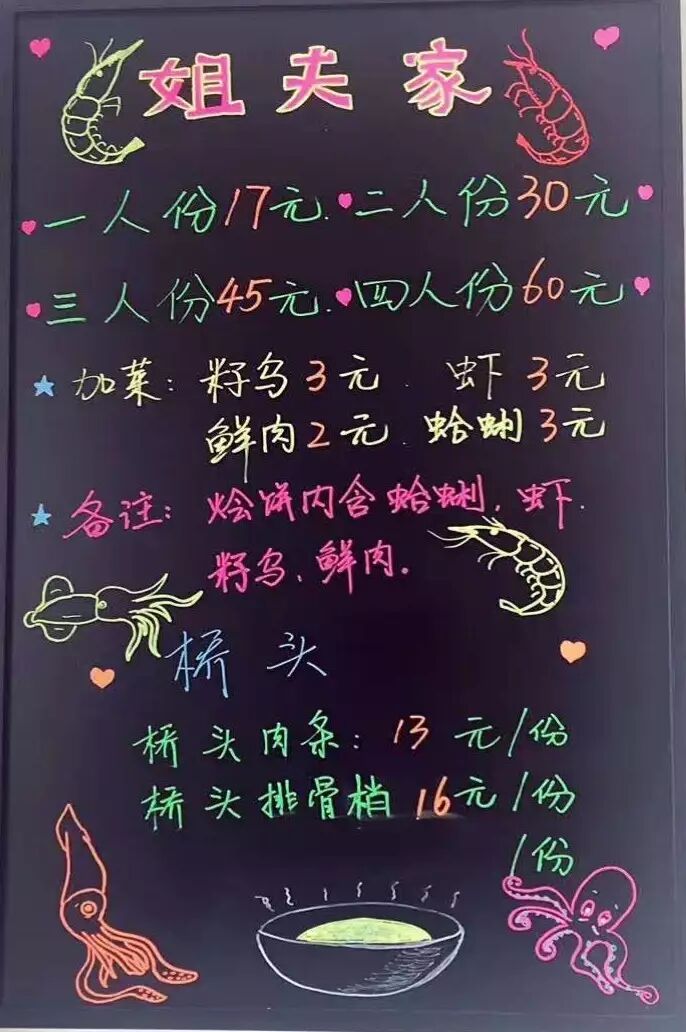 姐夫家
一人份17元.二人份30元
三人份45元.四人份60元
加菜:籽乌3元.虾3元
鲜肉2元.蛤蜊3元
备注:烩饼内含蛤蜊,虾.
籽乌、鲜肉.
桥头
桥头肉条:13元/份
桥头排骨梢16元/份
/份